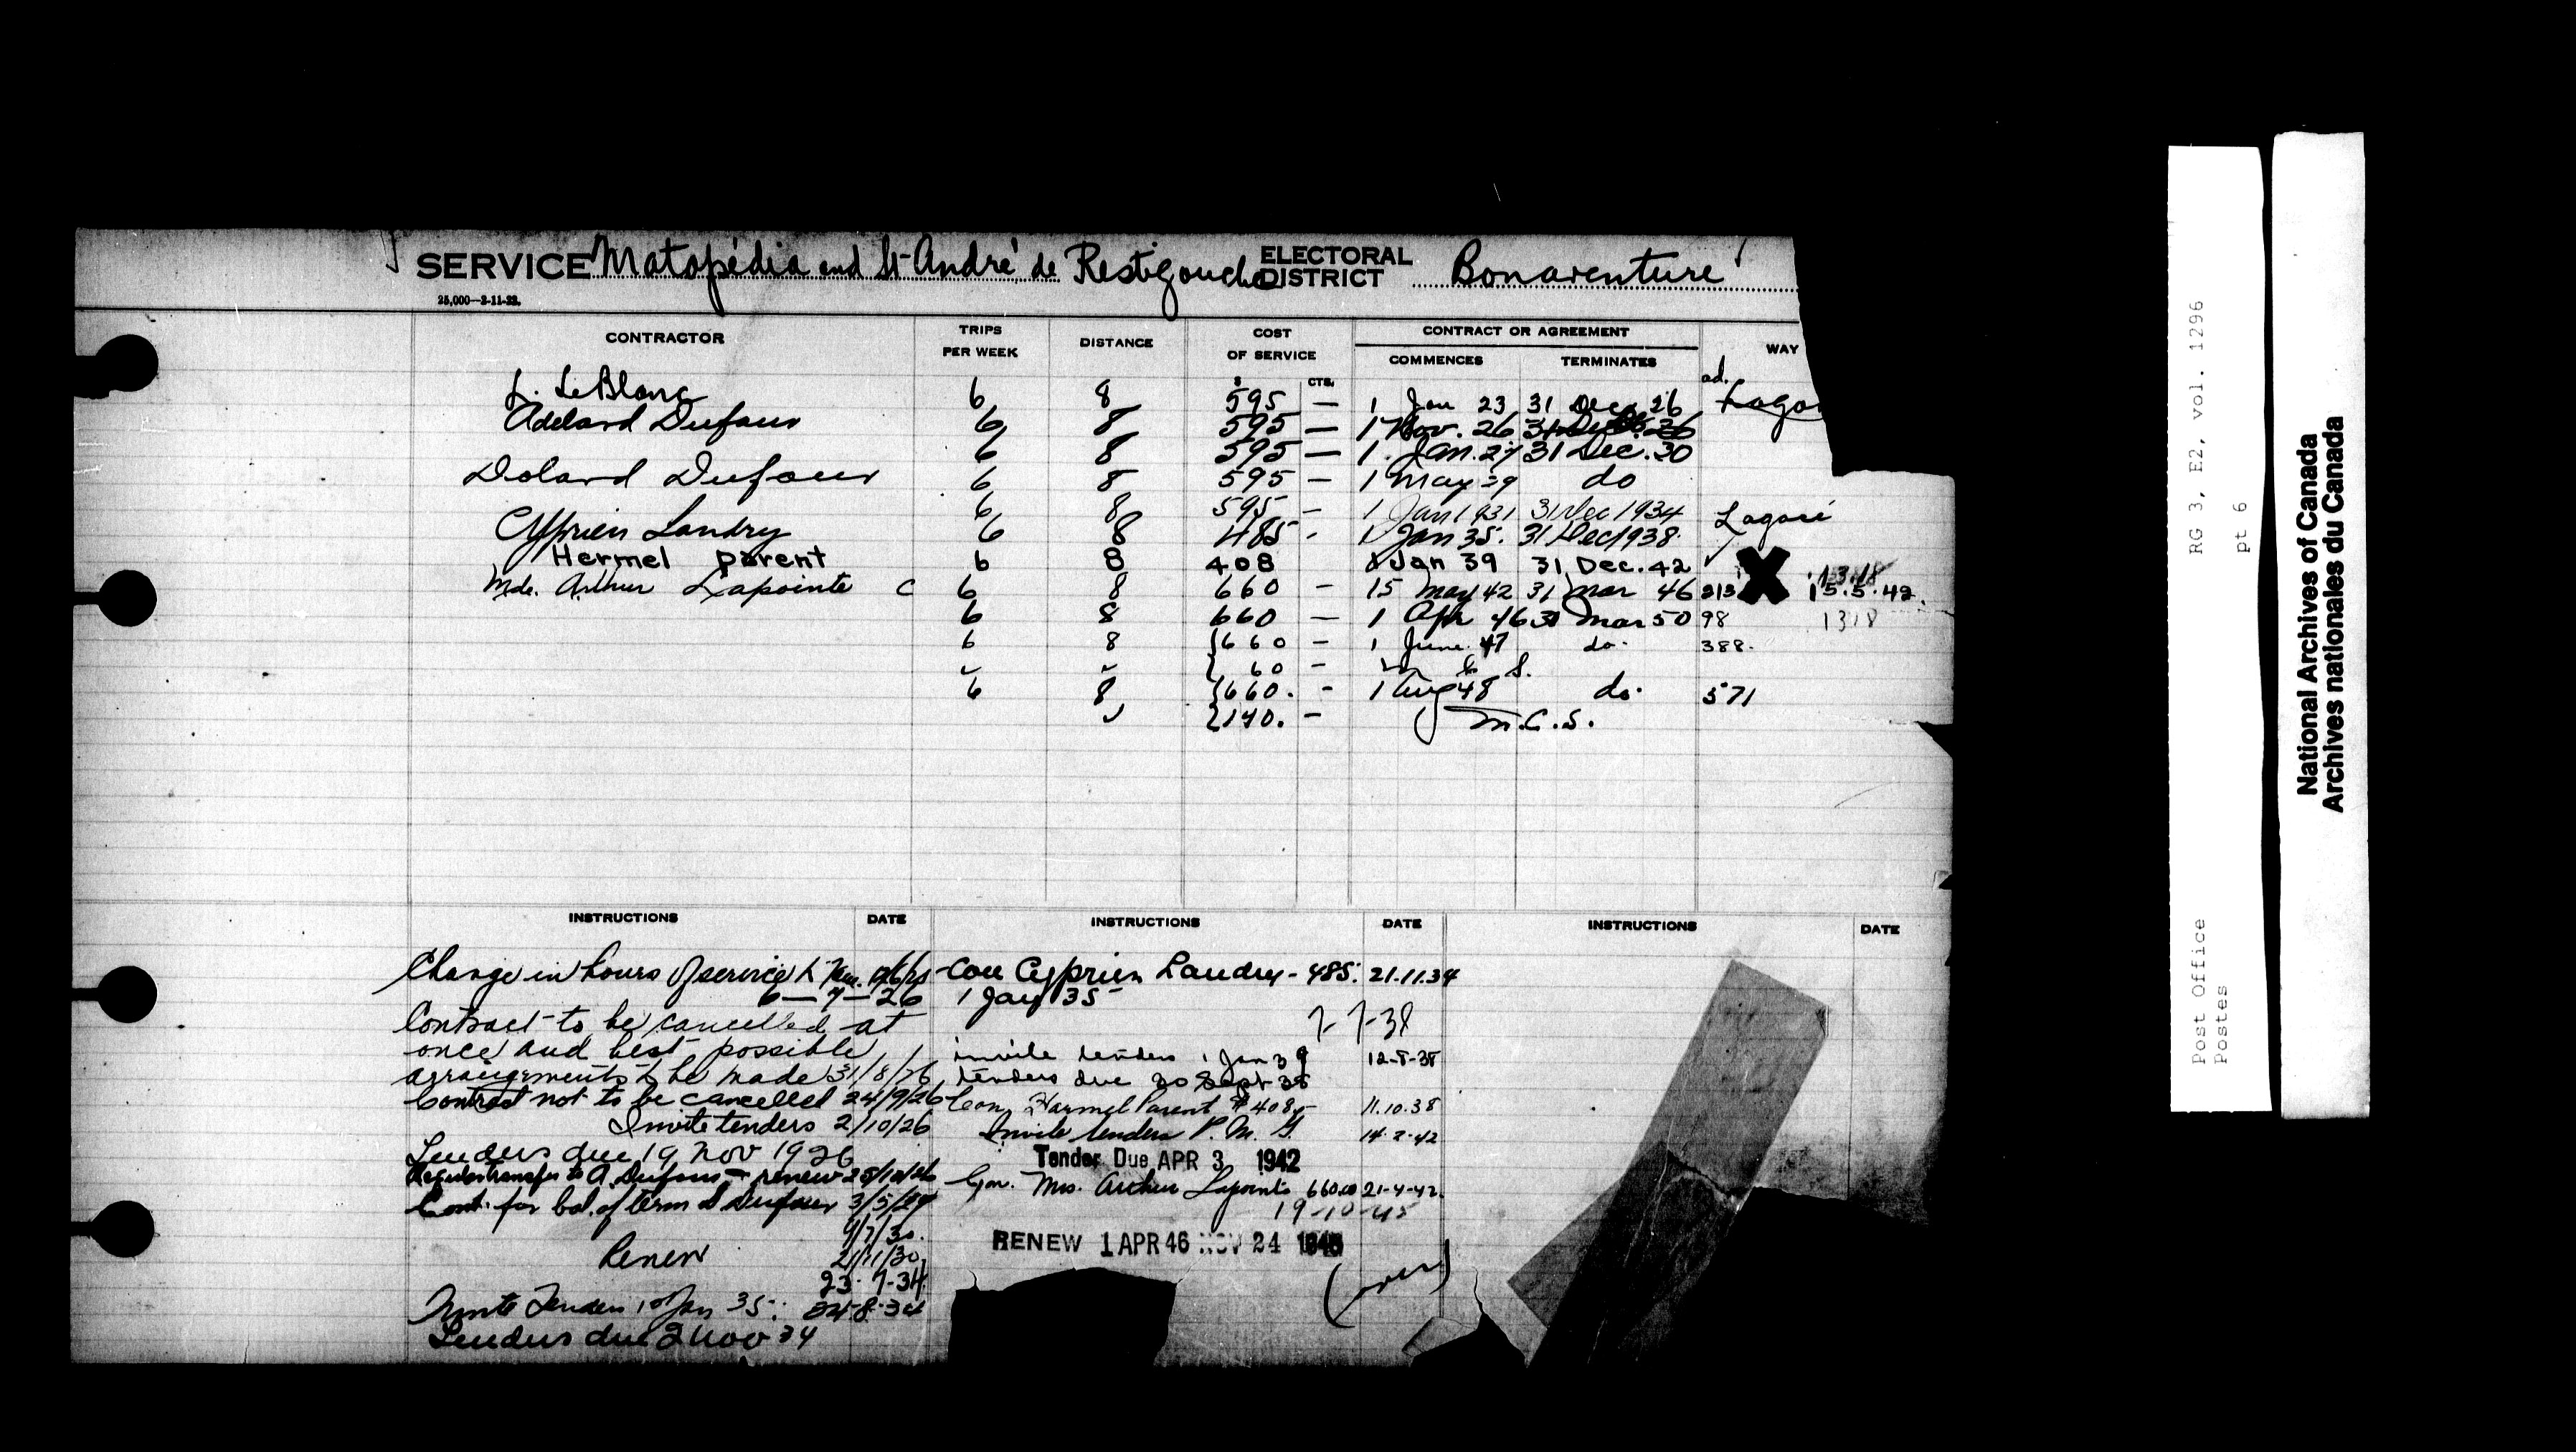 SERVICE Matapédia and St-André de Restigouche ELECTORAL DISTRICT Bonaventure
25,000—2-11-22.
CONTRACTOR TRIPS PER WEEK DISTANCE COST OF SERVICE CONTRACT OR AGREEMENT WAY
COMMENCES TERMINATES
$ CTS. ad.
L. LeBlanc 6 8 595 — 1 Jan 23 31 Dec. 26
Adelard Dufour 6 8 595 — 1 Nov. 26 31 Dec. 26
6 8 595 — 1 Jan. 27 31 Dec. 30
Dolard Dufour 6 8 595 — 1 May 29 do
6 8 595 — 1 Jan 1931 31 Dec 1934
Cyprien Landry 6 8 485 - 1 Jan 35. 31 Dec 1938. Lagacé
Hermel parent 6 8 408 1 Jan 39 31 Dec. 42
Mde. Arthur Lapointe C 6 8 660 — 15 May 42 31 Mar 46 213 X 15.5.42.
6 8 660 — 1 Apr 46 31 Mar 50 98 1318
6 8 {660 — 1 June 47 do. 388.
{ 60 — M C S.
6 8 {660. - 1 Aug 48 do. 571
{140. - M.C.S.
INSTRUCTIONS DATE INSTRUCTIONS DATE INSTRUCTIONS DATE
Change in hours of service
6—7—26
Contract to be cancelled at
once and best possible
arrangements to be made 31/8/26
Contract not to be cancelled 24/9/26
Invite tenders 2/10/26
Tenders due 19 Nov 1926
transfer to A. Dufour & renew 25/10/26
Cont. for bal. of term D Dufour 3/5/29
9/7/30.
Renew 21/11/30
23-7-34
Invite Tenders 1st Jan 35. 24-8-34
Tenders due 2 Nov 34
Con Cyprien Landry - 485. 21.11.34
1 Jan 35
7-7-38
invite tenders 1 Jan 39 12-8-38
tenders due 30 Sept 38
Con. Harmel Parent $408 11.10.38
Invite tenders P. M. G. 14-2-42
Tender Due APR 3 1942
Con. Mrs. Arthur Lapointe 660.00 21-4-42.
19-10-45
RENEW 1 APR 46 NOV 24 1945
(over)
RG 3, E2, vol. 1296
pt 6
Post Office
Postes
National Archives of Canada
Archives nationales du Canada